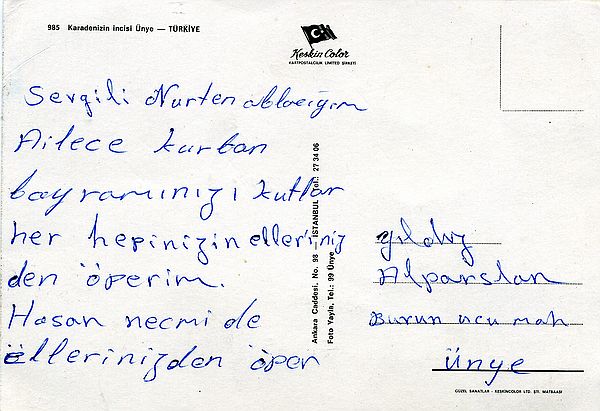 985 Karadenizin incisi Ünye — TÜRKİYE
Keskin Color
KARTPOSTALCILIK LIMITED ŞİRKETİ
Sevgili Nurten ablacığım
Ailece kurban
bayramınızı kutlar
her hepinizin elleriniz
den öperim.
Hasan necmi de
ellerinizden öper
Ankara Caddesi, No. 98 - İSTANBUL Tel.: 27 34 06
Foto Yayla, Tel.: 99 Ünye
yıldız
Alparslan
Burun ucu mah
ünye
GÜZEL SANATLAR - KESKİNCOLOR LTD. ŞTİ. MATBAASI